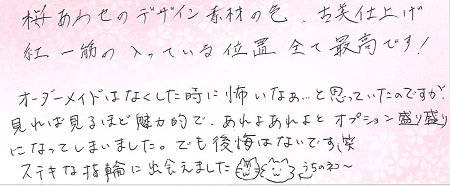 桜あわせのデザイン素材の色、古美仕上げ
紅一筋の入っている位置全て最高です!
オーダーメイドはなくした時に怖いなぁ…と思っていたのですが、
見れば見るほど魅力的で、あれよあれよとオプション盛り盛り
になってしまいました。でも後悔はないです笑
ステキな指輪に出会えました うちのネコ〜